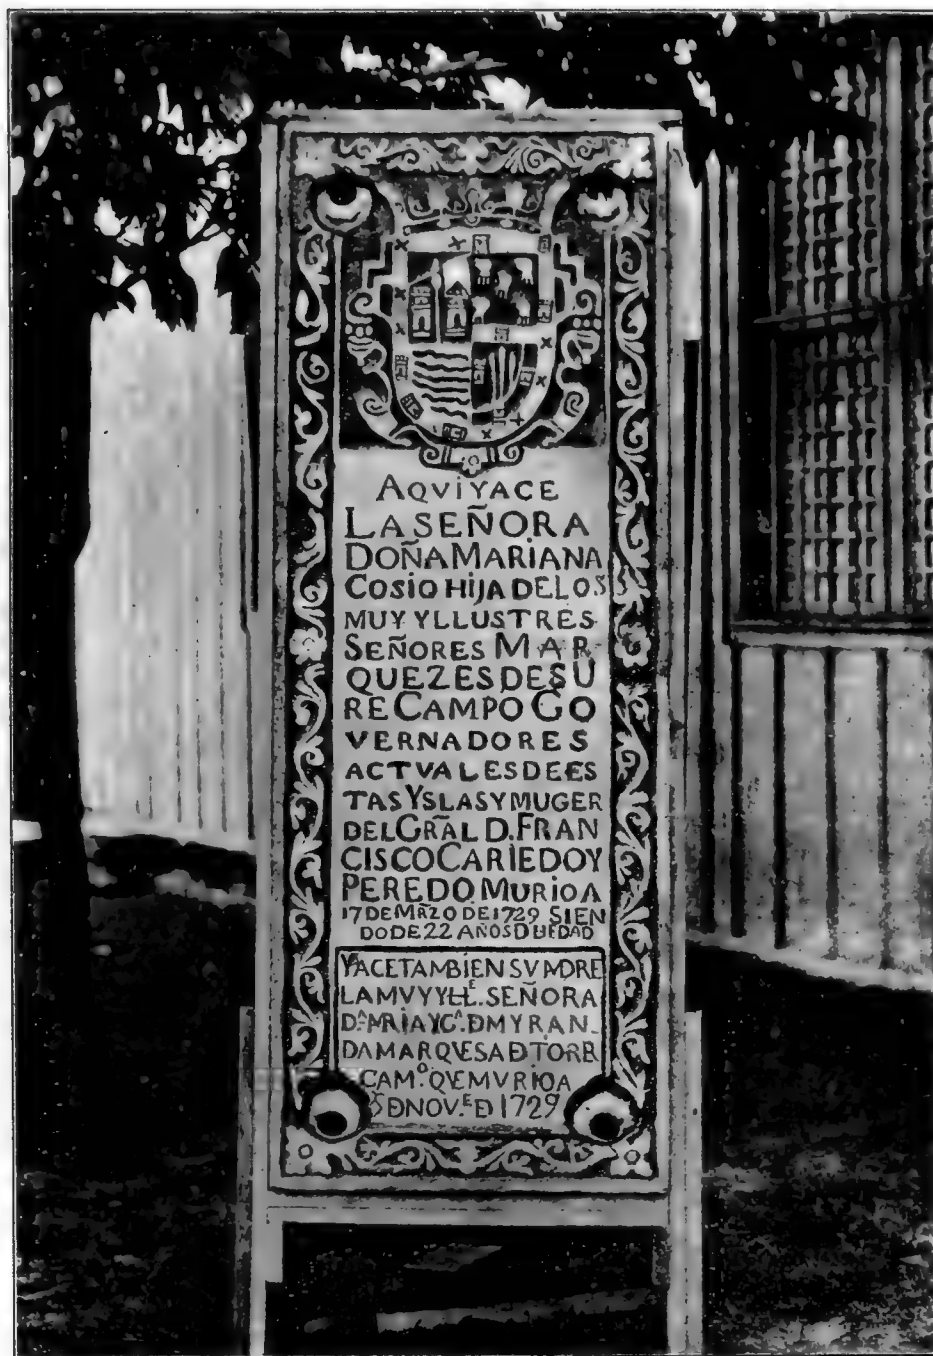 AQVI YACE
LA SEÑORA
DOÑA MARIANA
COSIO HIJA DE LOS
MUY YLLUSTRES
SEÑORES MAR
QUEZES DE SU
RE CAMPO GO
VERNADORES
ACTVALES DE ES
TAS YSLAS Y MUGER
DEL GRÃL D. FRAN
CISCO CARIEDO Y
PEREDO MURIO A
17 DE MR̃ZO DE 1729 SIEN
DO DE 22 AÑOS D HEDAD
YACE TAMBIEN SV MDRE
LA MVY YLLE. SEÑORA
DA. MRIA YGA. D MYRAN
DA MARQVESA D TORR
CAMO. QVE MVRIO A
8 D NOV.E D 1729